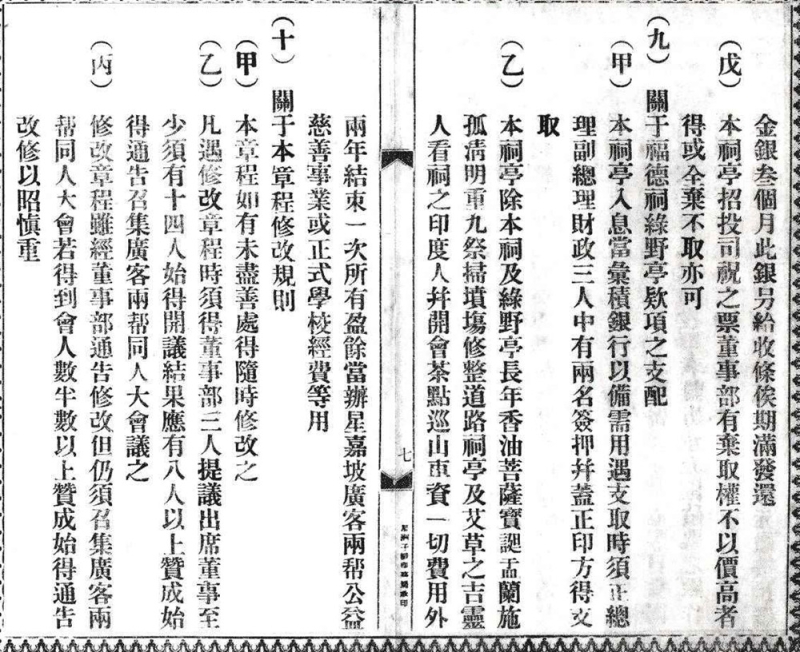 金銀叁個月此銀另給收條俟期滿發還
(戊)本祠亭招投司祝之票董事部有棄取權不以價高者
得或全棄不取亦可
(九)關于福德祠綠野亭欵項之支配
(甲)本祠亭入息當彙積銀行以備需用遇支取時須正總
理副總理財政三人中有兩名簽押幷蓋正印方得支
取
(乙)本祠亭除本祠及綠野亭長年香油菩薩寶誕盂蘭施
孤淸明重九祭掃墳塲修整道路祠亭及艾草之吉靈
人看祠之印度人幷開會茶點巡山車資一切費用外
七
兩年結束一次所有盈餘當辦星嘉坡廣客兩帮公益
慈善事業或正式學校經費等用
(十)關于本章程修改規則
(甲)本章程如有未盡善處得隨時修改之
(乙)凡遇修改章程時須得董事部三人提議出席董事至
少須有十四人始得開議結果應有八人以上贊成始
得通告召集廣客兩帮同人大會議之
(丙)修改章程雖經董事部通告修改但仍須召集廣客兩
帮同人大會若得到會人數半數以上贊成始得通告
改修以昭慎重